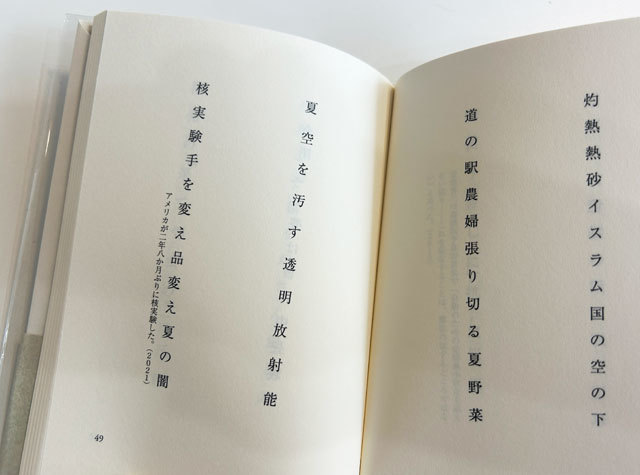 灼熱熱砂イスラム国の空の下
道の駅農婦張り切る夏野菜
夏空を汚す透明放射能
核実験手を変え品変え夏の闇
アメリカが二年八か月ぶりに核実験した。(2021)
49